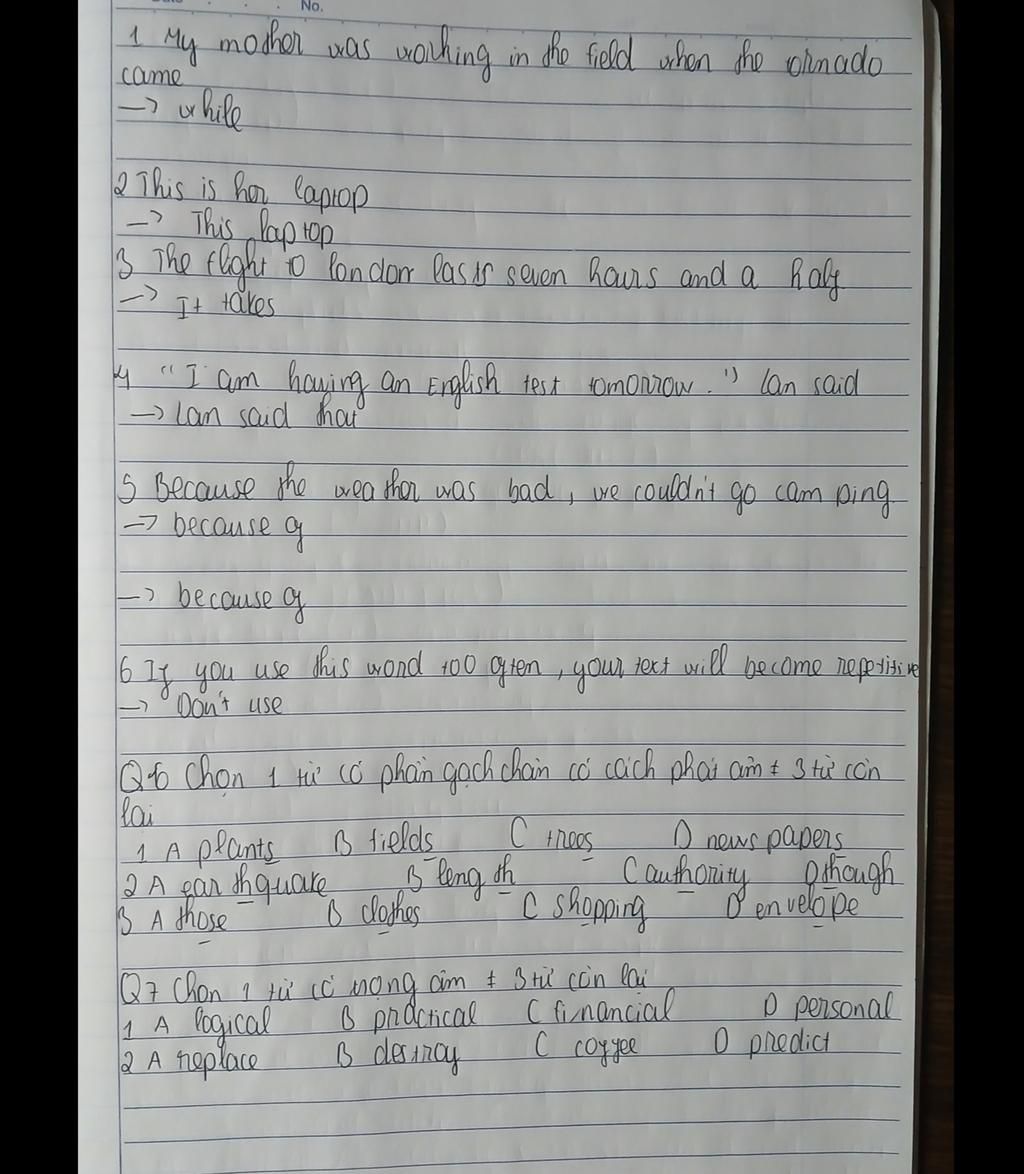 No.
1 My mother was working in the field when the ornado
came
-> while
2 This is her laptop
-> This laptop
3 The flight to london lasts seven hours and a half
-> It takes
4 "I am having an English test tomorrow." lan said
-> Lan said that
5 Because the weather was bad, we couldn't go cam ping
-> because of
-> because of
6 If you use this word too often, your text will become repetitive
-> Don't use
Q6 Chọn 1 từ có phần gạch chân có cách phát âm ≠ 3 từ còn
lại
1 A plants B fields C trees D news papers
2 A earthquake B length C authority D though
3 A those B clothes C shopping D envelope
Q7 Chọn 1 từ có trọng âm ≠ 3 từ còn lại
1 A logical B practical C financial D personal
2 A replace B destroy C coffee D predict